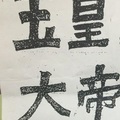 玉皇
大帝